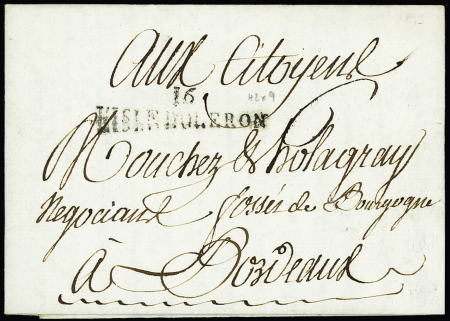 Aux Citoyens
16
ISLE D'OLERON
Mouchez & holagray
Negociant fossés de Bourgogne
à Bordeaux